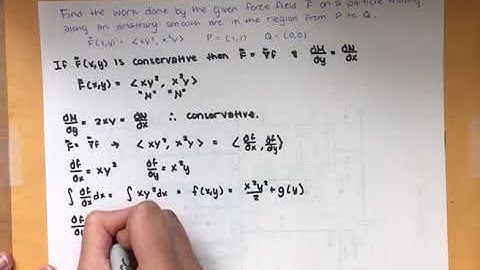 Find the work done by the given force field F on a particle moving
along an arbitrary smooth arc in the region from P to Q.
F̄(x,y) = <xy², x²y> P = (1,1) Q = (0,0)
If F̄(x,y) is conservative then F̄ = ∇̄f & ∂M/∂y = ∂N/∂x
F̄(x,y) = <xy², x²y>
"M" "N"
∂M/∂y = 2xy = ∂N/∂x ∴ conservative.
F̄ = ∇̄f → <xy², x²y> = <∂f/∂x, ∂f/∂y>
∂f/∂x = xy² ∂f/∂y = x²y
∫ ∂f/∂x dx = ∫ xy² dx = f(x,y) = x²y²/2 + g(y)
∂f